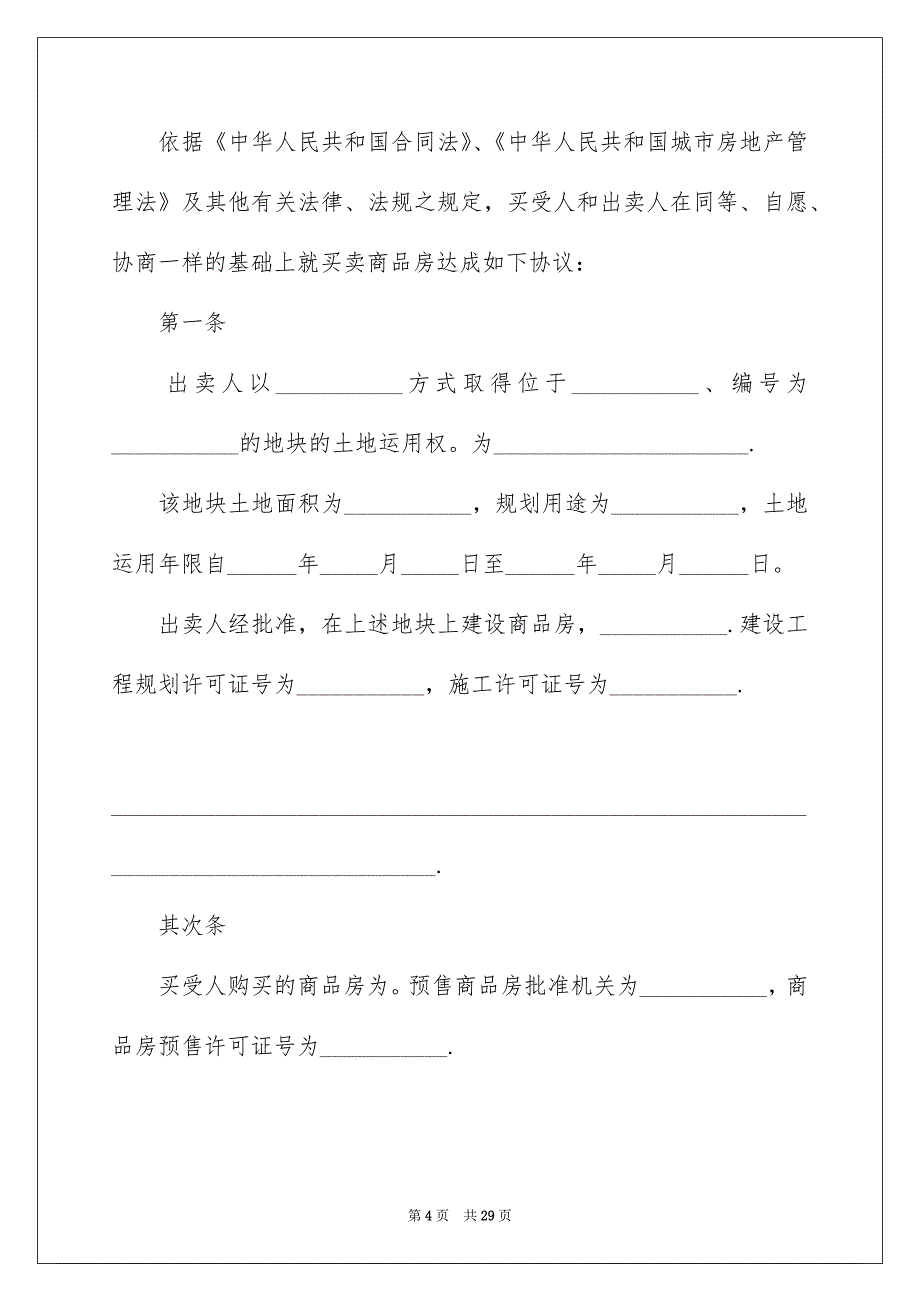 依据《中华人民共和国合同法》、《中华人民共和国城市房地产管
理法》及其他有关法律、法规之规定，买受人和出卖人在同等、自愿、
协商一样的基础上就买卖商品房达成如下协议：
第一条
出卖人以___________方式取得位于___________、编号为
___________的地块的土地运用权。为______________________.
该地块土地面积为___________，规划用途为___________，土地
运用年限自______年_____月_____日至______年_____月______日。
出卖人经批准，在上述地块上建设商品房，___________.建设工
程规划许可证号为___________，施工许可证号为___________.
____________________________________________________________
____________________________.
其次条
买受人购买的商品房为。预售商品房批准机关为___________，商
品房预售许可证号为___________.
第 4 页 共 29 页